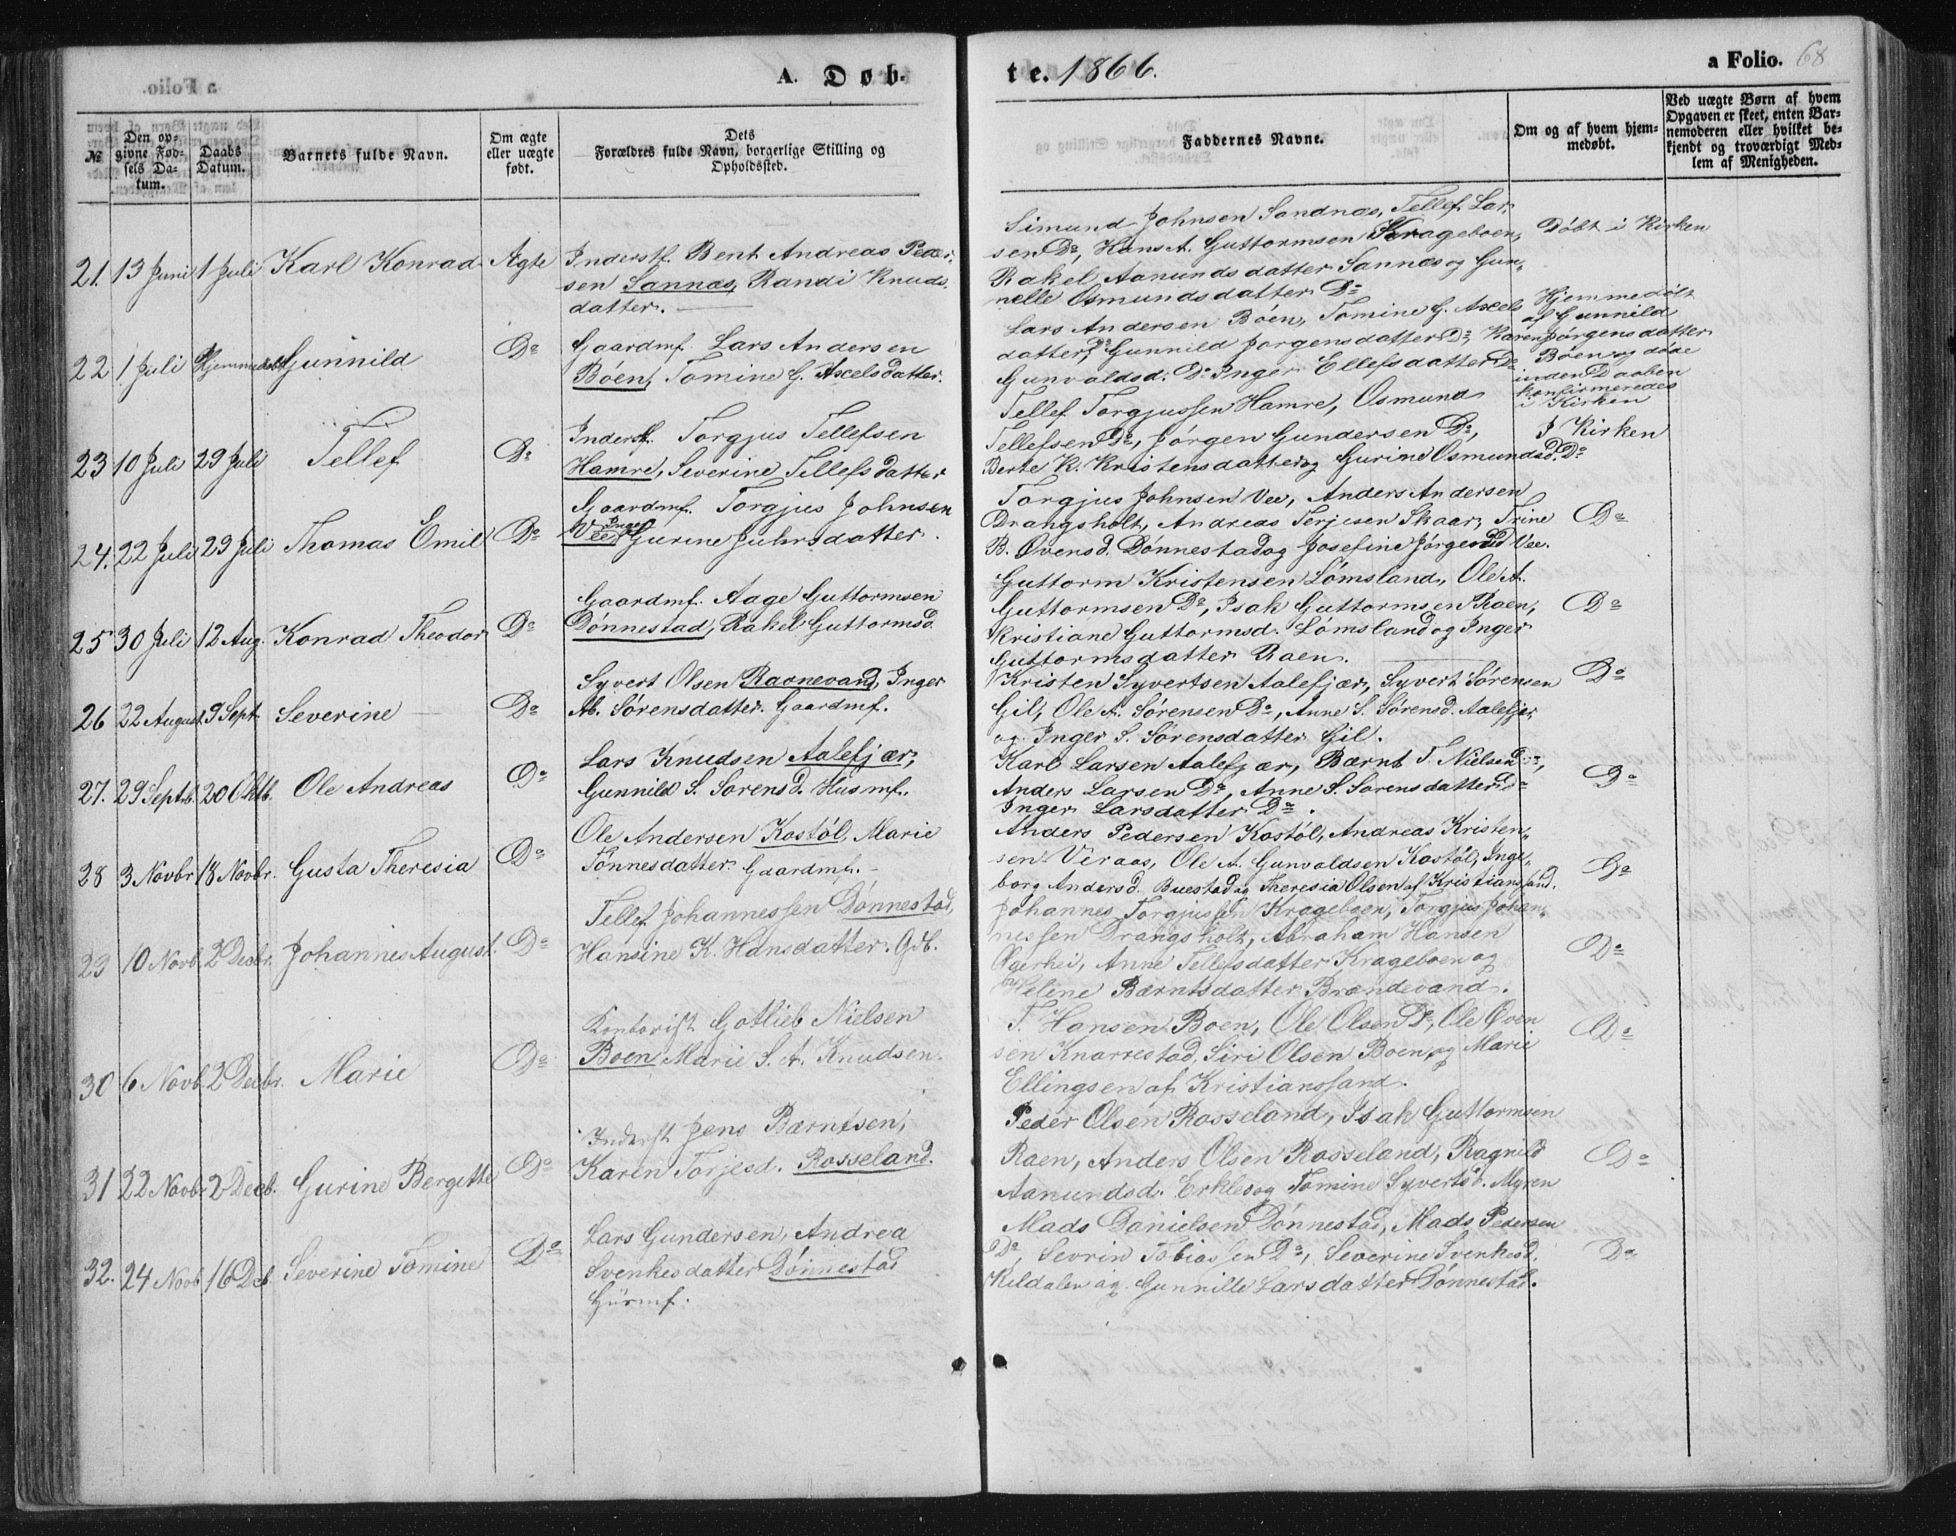 A. Døb-
te. 1866.
a Folio. 68
№
Den op-
givne Fød-
sels Da-
tum.
Daabs
Datum.
Barnets fulde Navn.
Om ægte
eller uægte
født.
Dets
Forældres fulde Navn, borgerlige Stilling og
Opholdssted.
Faddernes Navne.
Om og af hvem hjem-
medøbt.
Ved uægte Børn af hvem
Opgaven er skeet, enten Bar-
nemoderen eller hvilket be-
kjendt og troværdigt Med-
lem af Menigheden.
21. 13 Juni 1 Juli Karl Konrad Ægte
Inderst. Bent Andreas Peder-
sen Sannæs, Randi Knuds.
datter.
Simund Johnsen Sandnæs, Tellef Lar-
sen Do, Hans A. Guttormsen Krageboen,
Rakel Aanundsdatter Sannæs og Gun-
nelle Osmundsdatter Do
Døbt i Kirken
22 1 Juli Hjemmedøbt Gunnild Do
Gaardmf. Lars Andersen
Boen, Tomine G. Axelsdatter.
Lars Andersen Boen, Tomine G. Axels
datter Do, Gunnild Jørgensdatter Do, Karen
Gunvaldsd. Do Inger Ellefsdatter Do
Hjemmedøbt
af Gunnild
Jørgensdatter
Boen og døde
inden Daaben
konfirmeredes
i Kirken
23 10 Juli 29 Juli Tellef Do
Inderst. Torgjus Tellefsen
Hamre, Severine Tellefsdatter
Tellef Torgjussen Hamre, Osmund
Tellefsen Do, Jørgen Gundersen Do,
Berte K. Kristensdatter og Gurine Osmundsd. Do
I Kirken
24. 22 Juli 29 Juli Thomas Emil Do
Gaardmf. Torgjus Johnsen
Vee, Inger Gurine Juhrsdatter.
Torgjus Johnsen Vee, Anders Andersen
Drangsholt, Andreas Terjesen Skaar, Trine
B. Ovensd. Dønnestad og Josefine Jørgensd Vee.
Do
25 30 Juli 12 Aug. Konrad Theodor Do
Gaardmf. Aage Guttormsen
Dønnestad, Rakel Guttormsd.
Guttorm Kristensen Lømsland, Ole A.
Guttormsen Do, Isak Guttormsen Raen,
Kristiane Guttormsd. Lømsland og Inger
Guttormsdatter Raen.
Do
26 22 August 9 Sept. Severine Do
Syvert Olsen Ravnevand, Inger
Ab. Sørensdatter. Gaardmf.
Kristen Syvertsen Aalefjær, Syvert Sørensen
Gil, Ole A. Sørensen Do, Anne S. Sørensd. Aalefjær
og Inger S. Sørensdatter Gil.
Do
27. 29 Septb. 20 Oktb. Ole Andreas Do
Lars Knudsen Aalefjær,
Gunnild S. Sørensd. Husmf.
Karl Larsen Aalefjær, Bærnt T. Nielsen Do,
Anders Larsen Do, Anne S. Sørensdatter Do
Inger Larsdatter Do.
Do
28 3 Novbr 18 Novbr. Gusta Theresia Do
Ole Andersen Kostøl, Marie
Tønnesdatter. Gaardmf.
Anders Pedersen Kostøl, Andreas Kristen-
sen Veraas, Ole A. Gunvaldsen Kostøl, Inge-
borg Andersd. Buestad og Theresia Olsen af Kristiansand.
Do
29 10 Novb. 2 Decbr. Johannes August. Do
Tellef Johannessen Dønnestad,
Hansine K. Hansdatter. Gdb.
Johannes Torgjussen Krageboen, Torgjus Johan-
nessen Drangsholt, Abraham Hansen
Ogerhei, Anne Tellefsdatter Krageboen og
Helene Bærntsdatter Brændevand.
Do
30 6 Novb. 2 Decbr. Marie Do
Kontorist Gotlieb Nielsen
Boen Marie S. A. Knudsen.
T. Hansen Boen, Ole Olsen Do, Ole Oven
sen Knarrestad, Siri Olsen Boen og Marie
Ellingsen af Kristianssand.
Do
31 22 Novb. 2 Decb. Gurine Bergitte Do
Inderst Jens Bærntsen,
Karen Torjesd. Rosseland.
Peder Olsen Rosseland, Isak Guttormsen
Raen, Anders Olsen Rosseland, Ragnild
Aanundsd. Erklev og Tomine Syvertsd. Myren
Do
32. 24 Novb 16 Deb Severine Tomine Do
Lars Gundersen, Andrea
Svenkesdatter Dønnestad
Husmf.
Mads Danielsen Dønnestad, Mads Pedersen
Do, Sevrin Tobiassen Do, Severine Svenkesd.
Kildalen og Gunnille Larsdatter Dønnestad.
Do